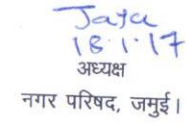 Jaya
18.1.17
अध्यक्ष
नगर परिषद, जमुई।